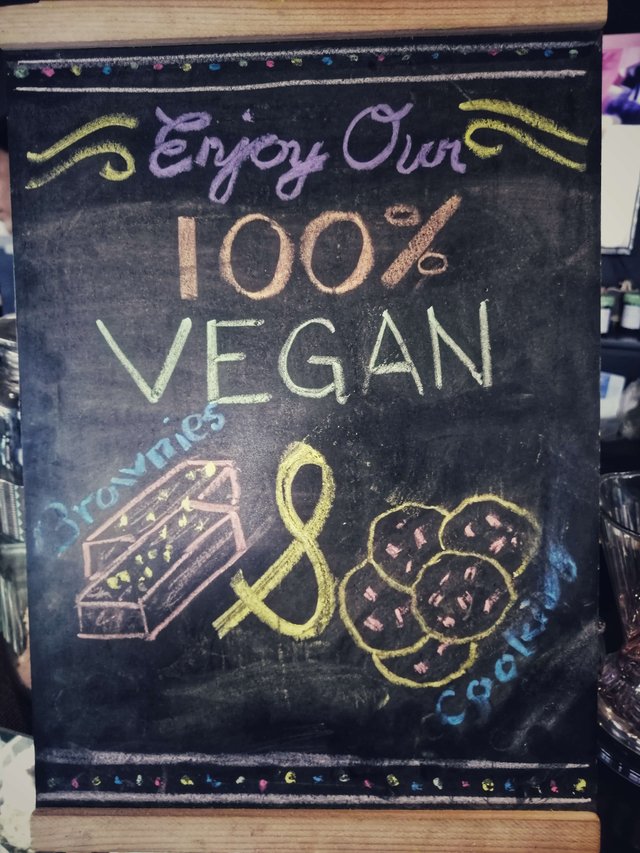 Enjoy Our
100%
VEGAN
Brownies
&
Cookies